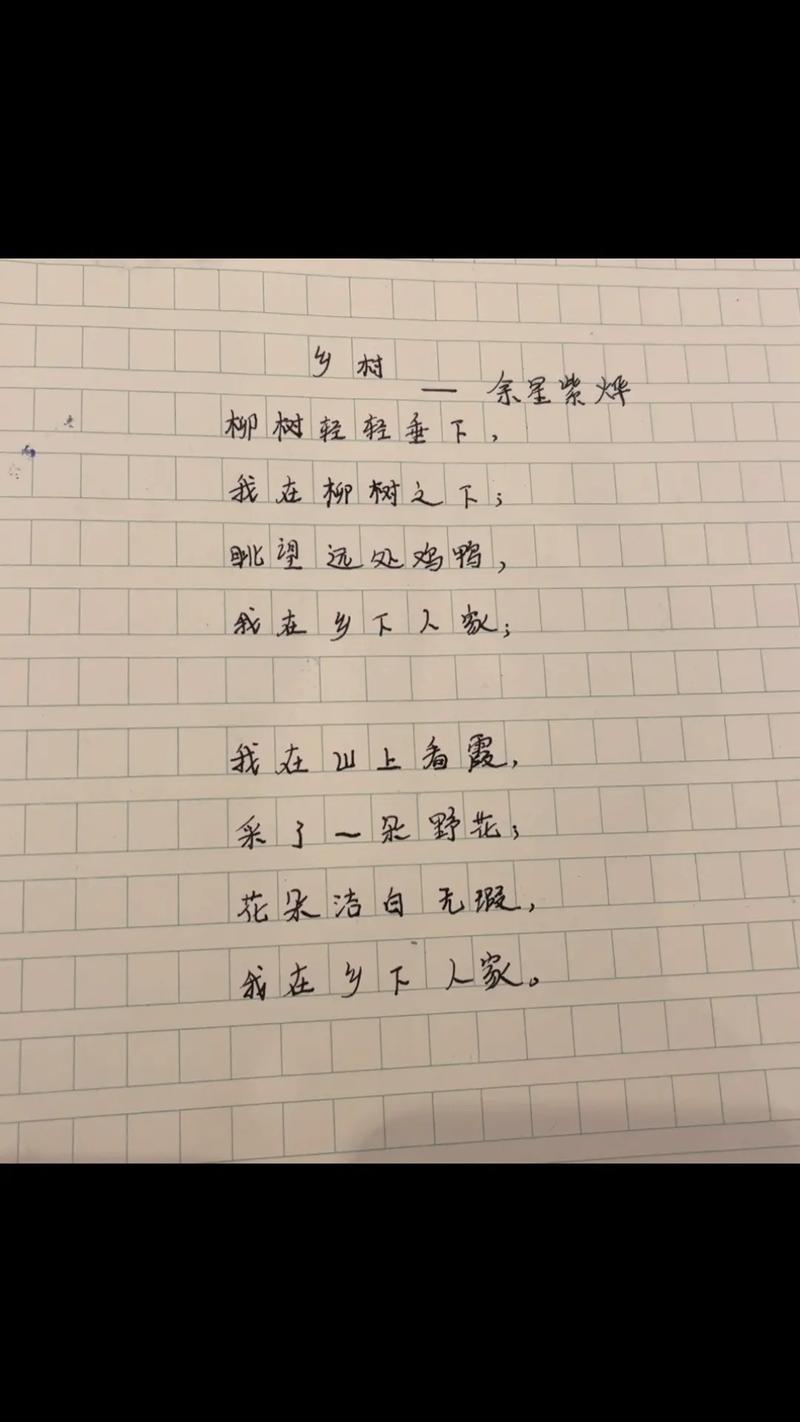 乡村
— 余星紫烨
柳树轻轻垂下，
我在柳树之下；
眺望远处鸡鸭，
我在乡下人家；
我在山上看霞，
采了一朵野花；
花朵洁白无瑕，
我在乡下人家。